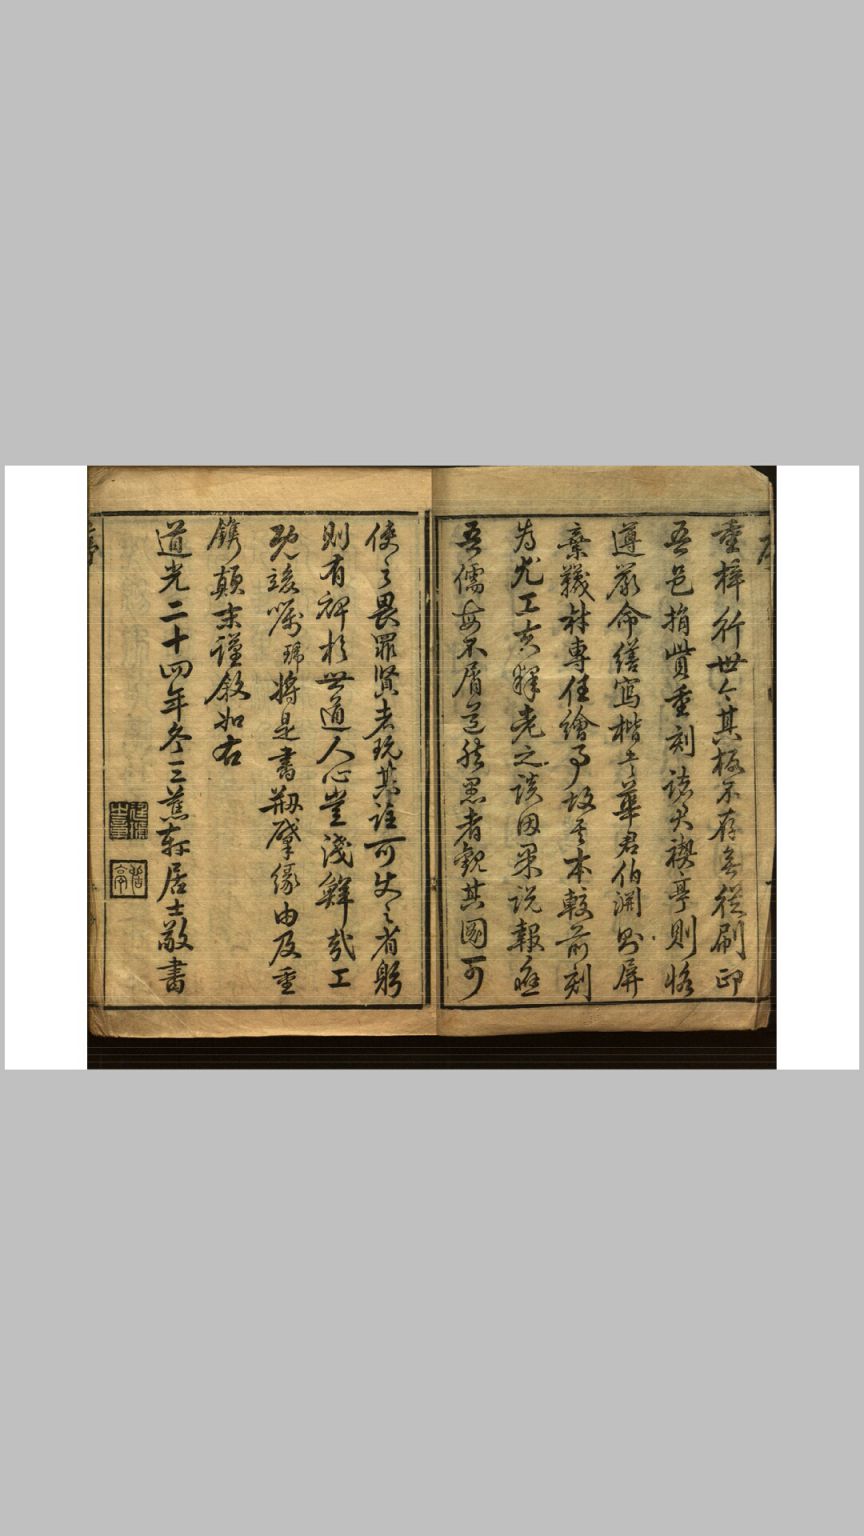 重梓行世今其板不存無從刷印
吾邑捐貲重刻諸君禊亭則恪
遵嚴命繕寫楷書華君伯淵則屏
棄襪材專任繪事故是本較前刻
為尤工夫釋老之談因果說報應
吾儒每不屑道然愚者觀其圖可
使之畏罪賢者玩其註可使之省躬
則有裨於世道人心豈淺鮮哉工
既竣囑將是書剏肇緣由及重
鐫顛末謹敘如右
道光二十四年冬三蕉軒居士敬書